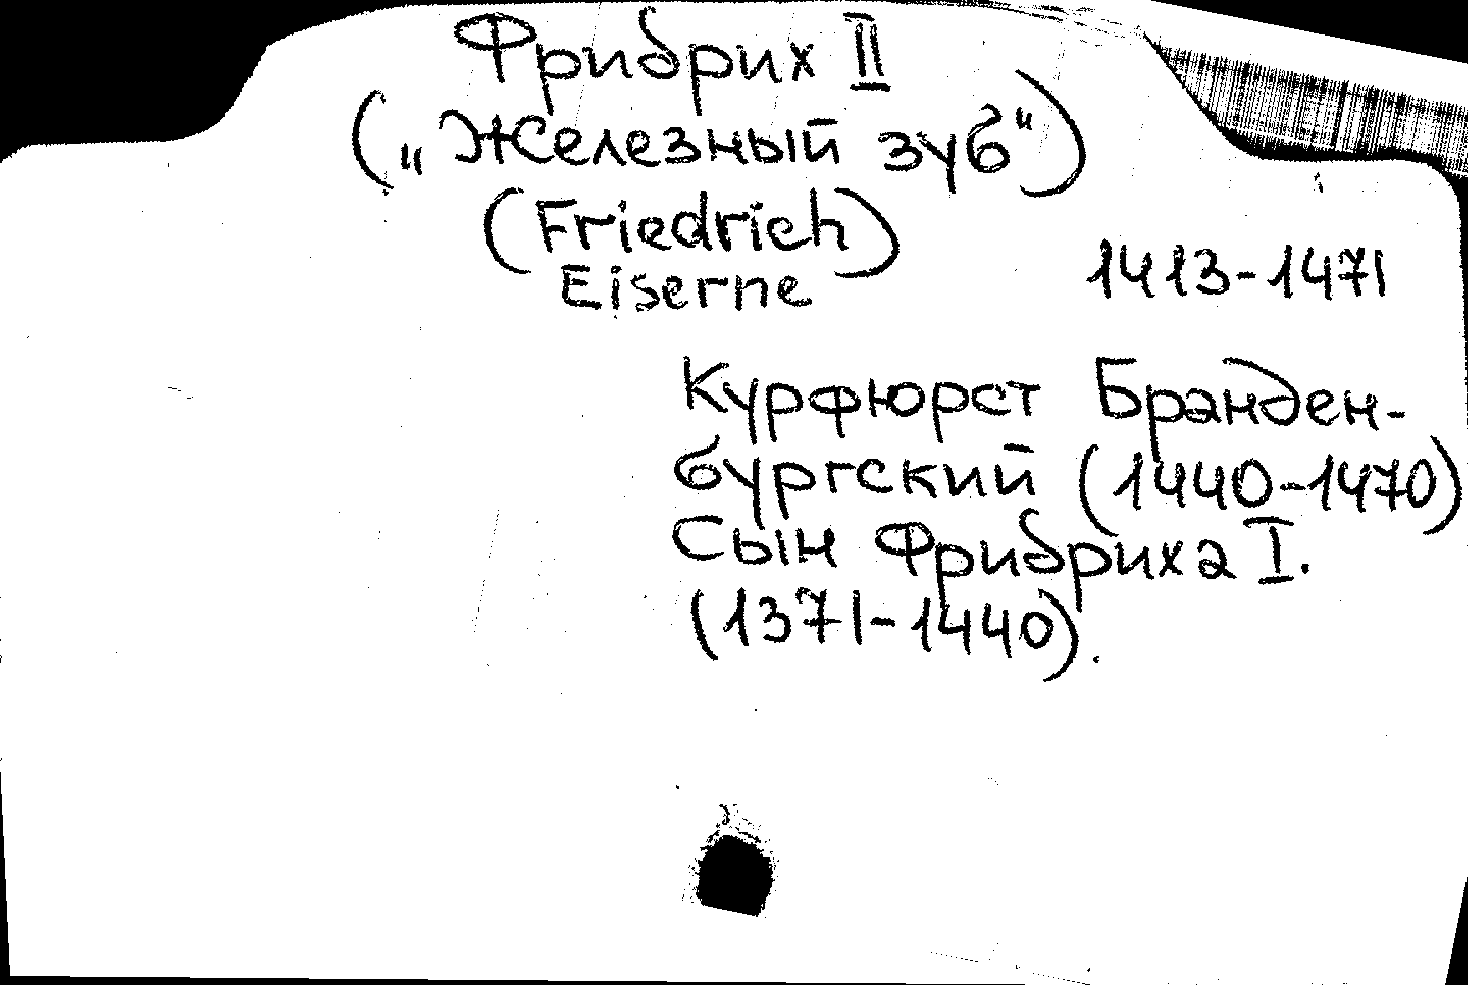 Фридрих II
(„Железный зуб“)
(Friedrich)
Eiserne
1413-1471
Курфюрст Бранден-
бургский (1440-1470)
Сын Фридриха I.
(1371-1440).